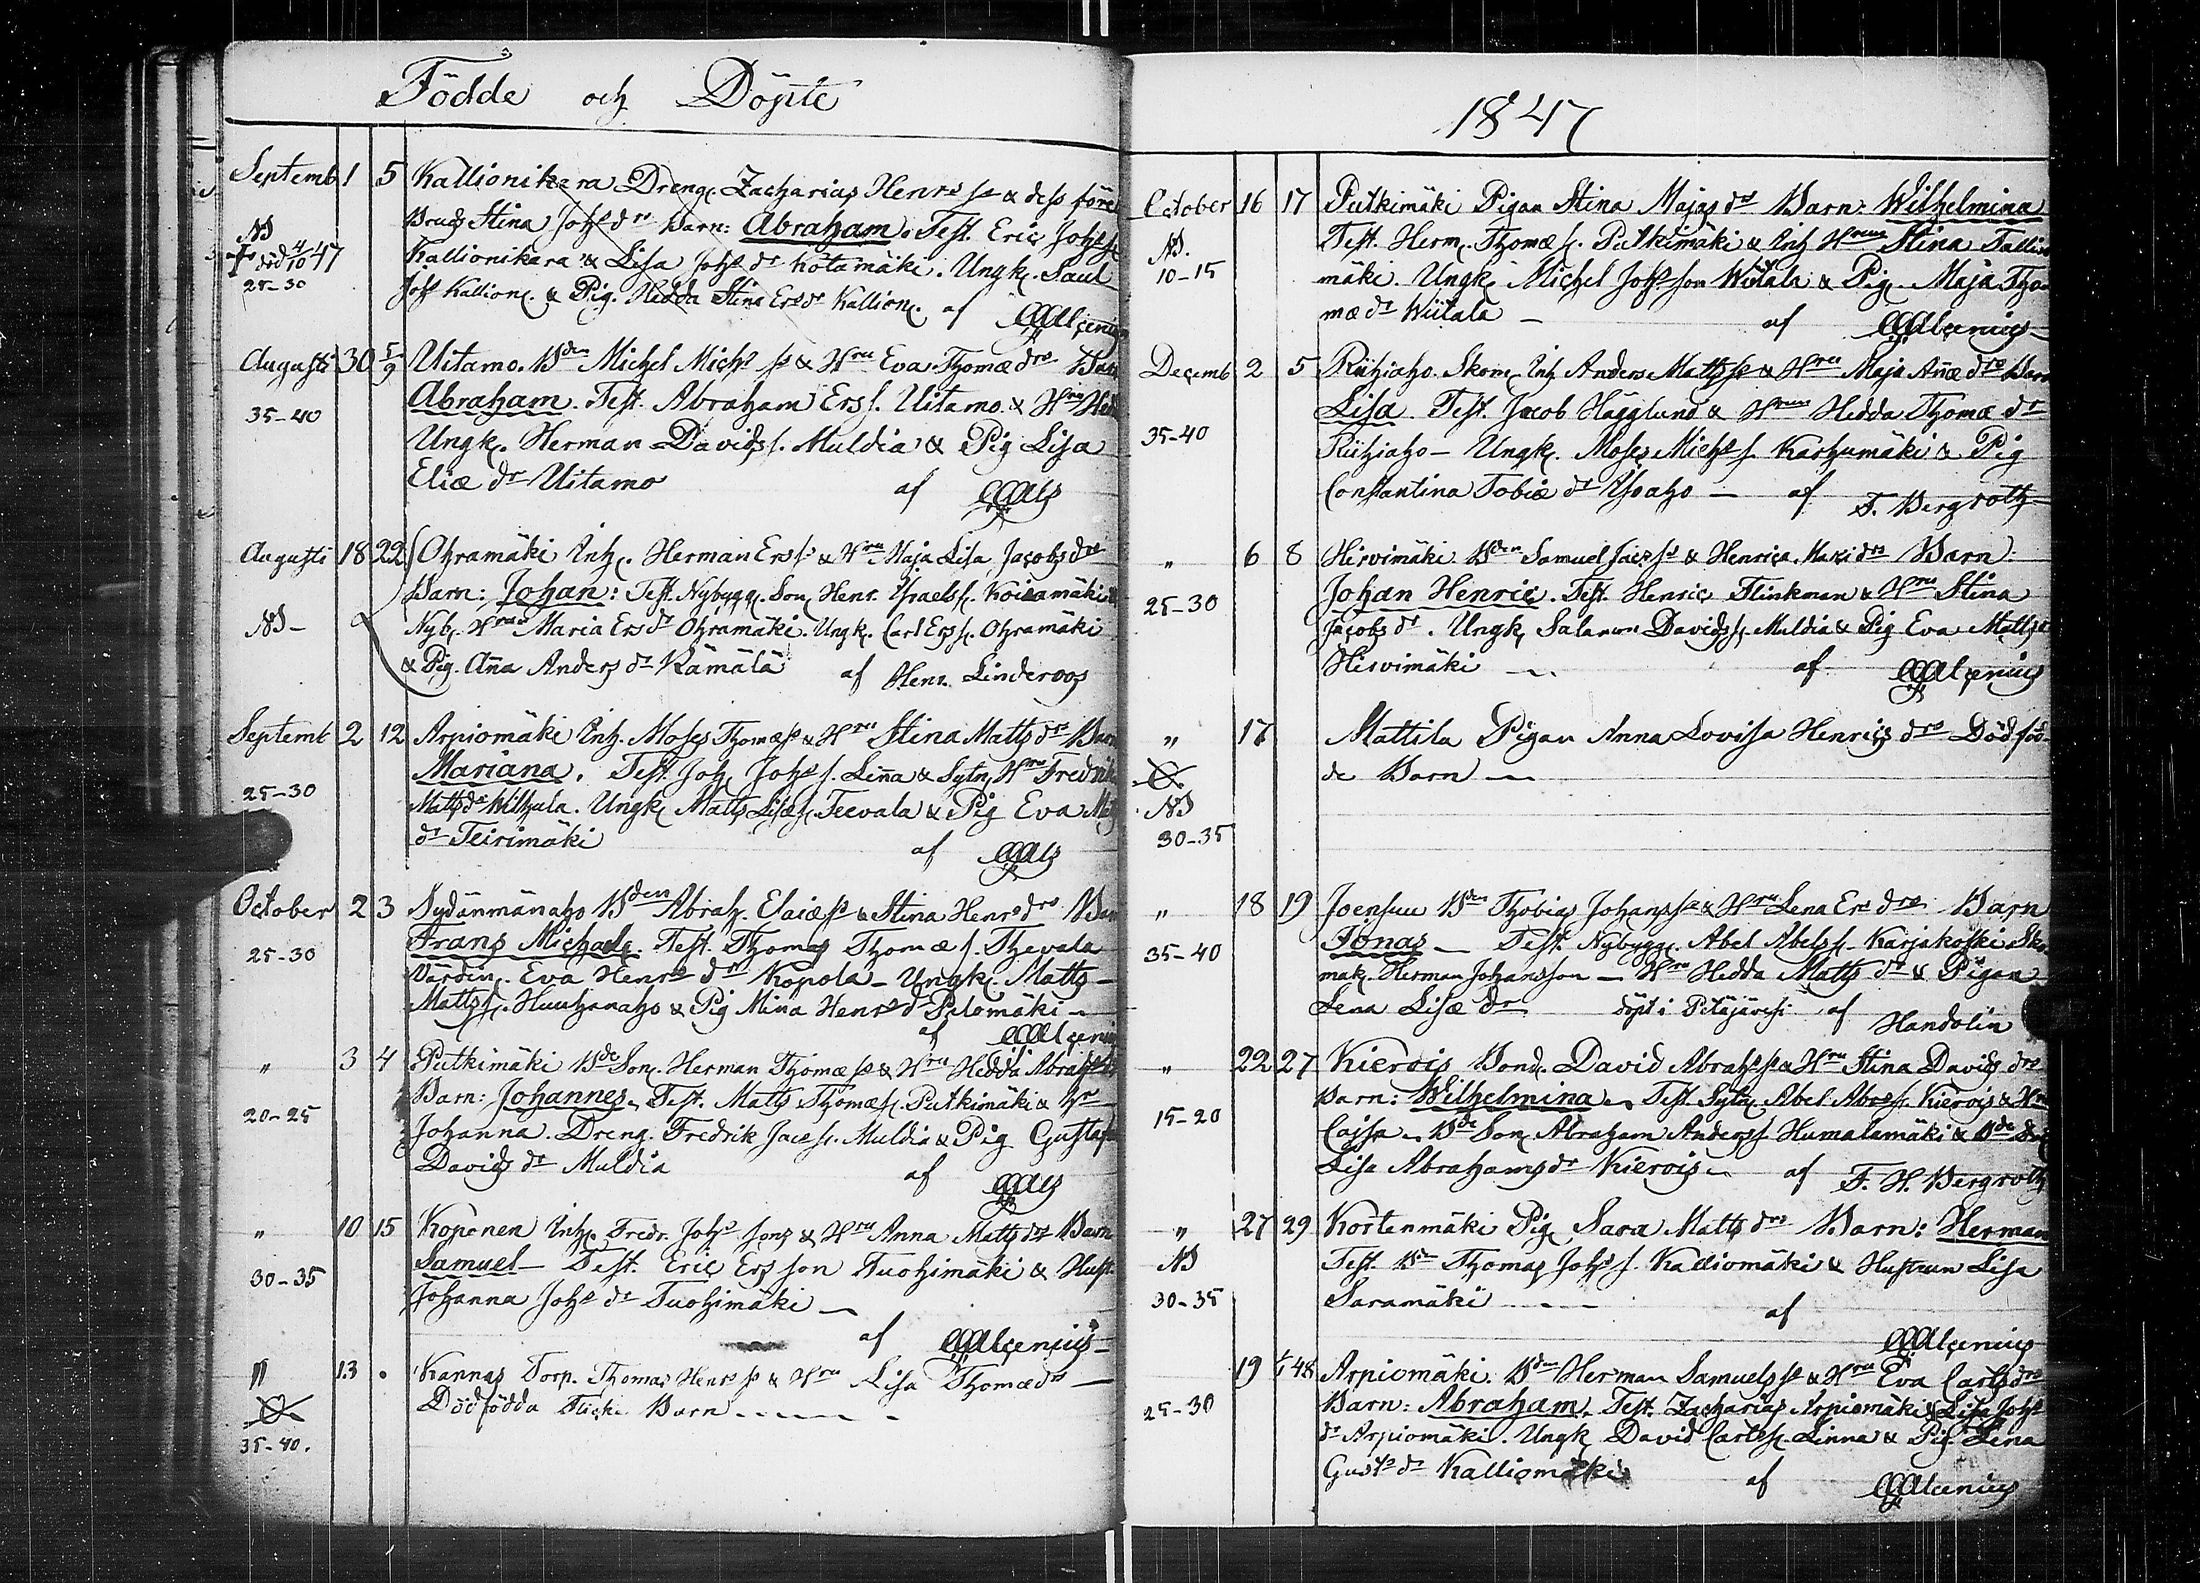 Födde och Döpte
Septemb 1 5 Kallionikara Dreng. Zacharias Henrs so & dess före
Bruds Stina Johs dr Barn: Abraham. Test. Eric Johs s.
död 4/10 47 Kallionikara & Lisa Johs dr Kotamäki. Ungk. Saul
25-30 Johs Kallion. & Pig. Hedda Stina Ers dr Kallion. af Alcenius
Augusti 30 5/9 Uitamo. Bden Michel Michs so & Hru Eva Thomæ drs Barn
35-40 Abraham. Test. Abraham Ers s. Uitamo & Hru Hed
Ungk. Herman Davids s. Muldia & Pig Lisa
Eliæ dr Uitamo af
Augusti 18 22 Ohramäki Inh. Herman Ers so & Hru Maja Lisa Jacobs drs
Barn: Johan: Test. Nybygg. Son Henr. Israels s. Koiramäki
Nyb. Hrun Maria Ers dr Ohramäki. Ungk. Carl Ers s. Ohramäki
& Pig. Anna Anders dr Kämälä af Henr. Linderoos
Septemb 2 12 Arpiomäki Inh. Moses Thomæ so & Hru Stina Matts dr Barn
Mariana. Test. Joh. Johs s. Linna & Sytn. Hru Fredrik
25-30 Matts dr Wilhala. Ungk. Matts Lisæ s. Teevala & Pig Eva
dr Teirimäki af
October 2 3 Sydänmänaho Bden Abrah. Elaiæ so & Stina Henrs drs Barn
25-30 Frans Michael. Test. Thomas Thomæ s. Thevala
Värdin. Eva Henrs dr Kopola - Ungk. Matts
Matts s. Huuhanaho & Pig Mina Henrs d Palomäki -
af Alcenius
" 3 4 Putkimäki Bde Son. Herman Thomæ so & Hru Hedda Abrahs
Barn: Johannes. Test. Matts Thomæ s. Putkimäki & Hr
20-25 Johanna. Dreng. Fredrik Jacs s. Muldia & Pig Gustafa
Davids dr Muldia af
" 10 15 Koponen Inh. Fredr. Johs sons & Hru Anna Matts dr Barn
30-35 Samuel - Test. Eric Ers son Tuohimäki & Hust.
Johanna Johs dr Tuohimäki -
af Alcenius
" 13 . Kannas Torp. Thomas Henrs so & Hru Lisa Thomæ drs -
Dödfödda Flicke Barn
35-40.
1847
October 16 17 Putkimäki Pigan Stina Majas dr Barn: Wilhelmina
Test. Herm. Thomæ s. Putkimäki & Inh Hrun Stina Tallio
10-15 mäki. Ungk. Michel Johs son Wiitala & Pig. Maja Tho
mæ dr Wiitala - af Alcenius
Decemb 2 5 Riihiaho. Skom. Inh Anders Matts so & Hru Maja Annæ drs Barn
Lisa. Test. Jacob Hägglund & Hrun Hedda Thomæ dr
35-40 Riihiaho - Ungk. Moses Michs s. Karhumäki & Pig
Constantina Tobiæ dr Ylsaho - af F. Bergroth
" 6 8 Hirvimäki Bden Samuel Jacs so & Henrica Maxi drs Barn.
25-30 Johan Henric. Test. Henric Flinkman & Hru Stina
Jacobs dr. Ungk. Salamon Davids s. Muldia & Pig Eva Matts
Hirvimäki - af Alcenius
" 17 Mattila Pigan Anna Lovisa Henrics drs Dödföd
de Barn -
30-35
" 18 19 Joensuu Bden Thobias Johans so & Hru Lena Ers drs Barn
35-40 Jonas - Test. Nybygg. Abel Abels s. Karjakoski Sko
mak. Herman Johansson - Hru Hedda Matts dr & Pigan
Lena Lisæ dr döpt i Petäjävesi af Handolin
" 22 27 Kierois Bond. David Abrahs so & Hru Stina Davids drs
Barn: Wilhelmina - Test Sytn. Abel Abrs s. Kierois & Hru
15-20 Cajsa - Bde Son Abraham Anders s. Humalamäki & Bde
Lisa Abrahams dr Kierois - af F. H. Bergroth
" 27 29 Kortenmäki Pig. Sara Matts drs Barn: Herman
Test. Bn Thomas Johs s. Kalliomäki & Hustrun Lisa
30-35 Saramäki - - - af
Alcenius
19 1/1 48 Arpiomäki. Bden Herman Samuels so & Hru Eva Carls drs
25-30 Barn: Abraham. Test. Zacharias Arpiomäki & Lisa Johs
dr Arpiomäki. Ungk. David Carls s. Linna & Pig Lena
Gusts dr Kalliomäki af Alcenius